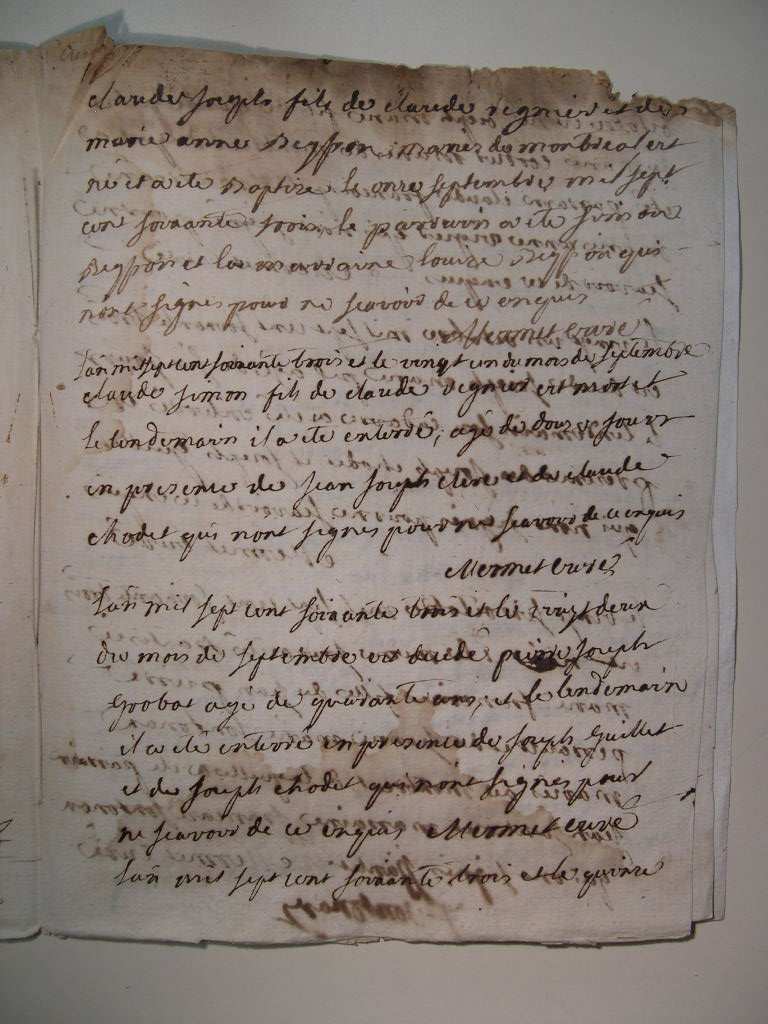 claude Joseph fils de claude regnier et de
marie anne Beysson mariez de montreal est
né et a ete Baptize le onze septembre mil sept
cent soixante trois le parrain a ete simon
Beysson et la marraine louise Beysson qui
nont signes pour ne scavoir de ce enquis
Mermet curé
lan mil sept cent soixante trois et le vingt un du mois de septembre
claude simon fils de claude regnier est mort et
le lendemain il a ete enterré, agé de douze jours
en presence de Jean Joseph clerc et de claude
chodet qui nont signes pour ne scavoir de ce enquis
Mermet curé
lan mil sept cent soixante trois et le vingt deux
du mois de septembre est decedé Joseph
Goobat age de quarante ans, et le lendemain
il a eté enterré en presence de Joseph Guillet
et de Joseph chodet qui nont signes pour
ne scavoir de ce enquis Mermet curé
lan mil sept cent soixante trois et le quinze